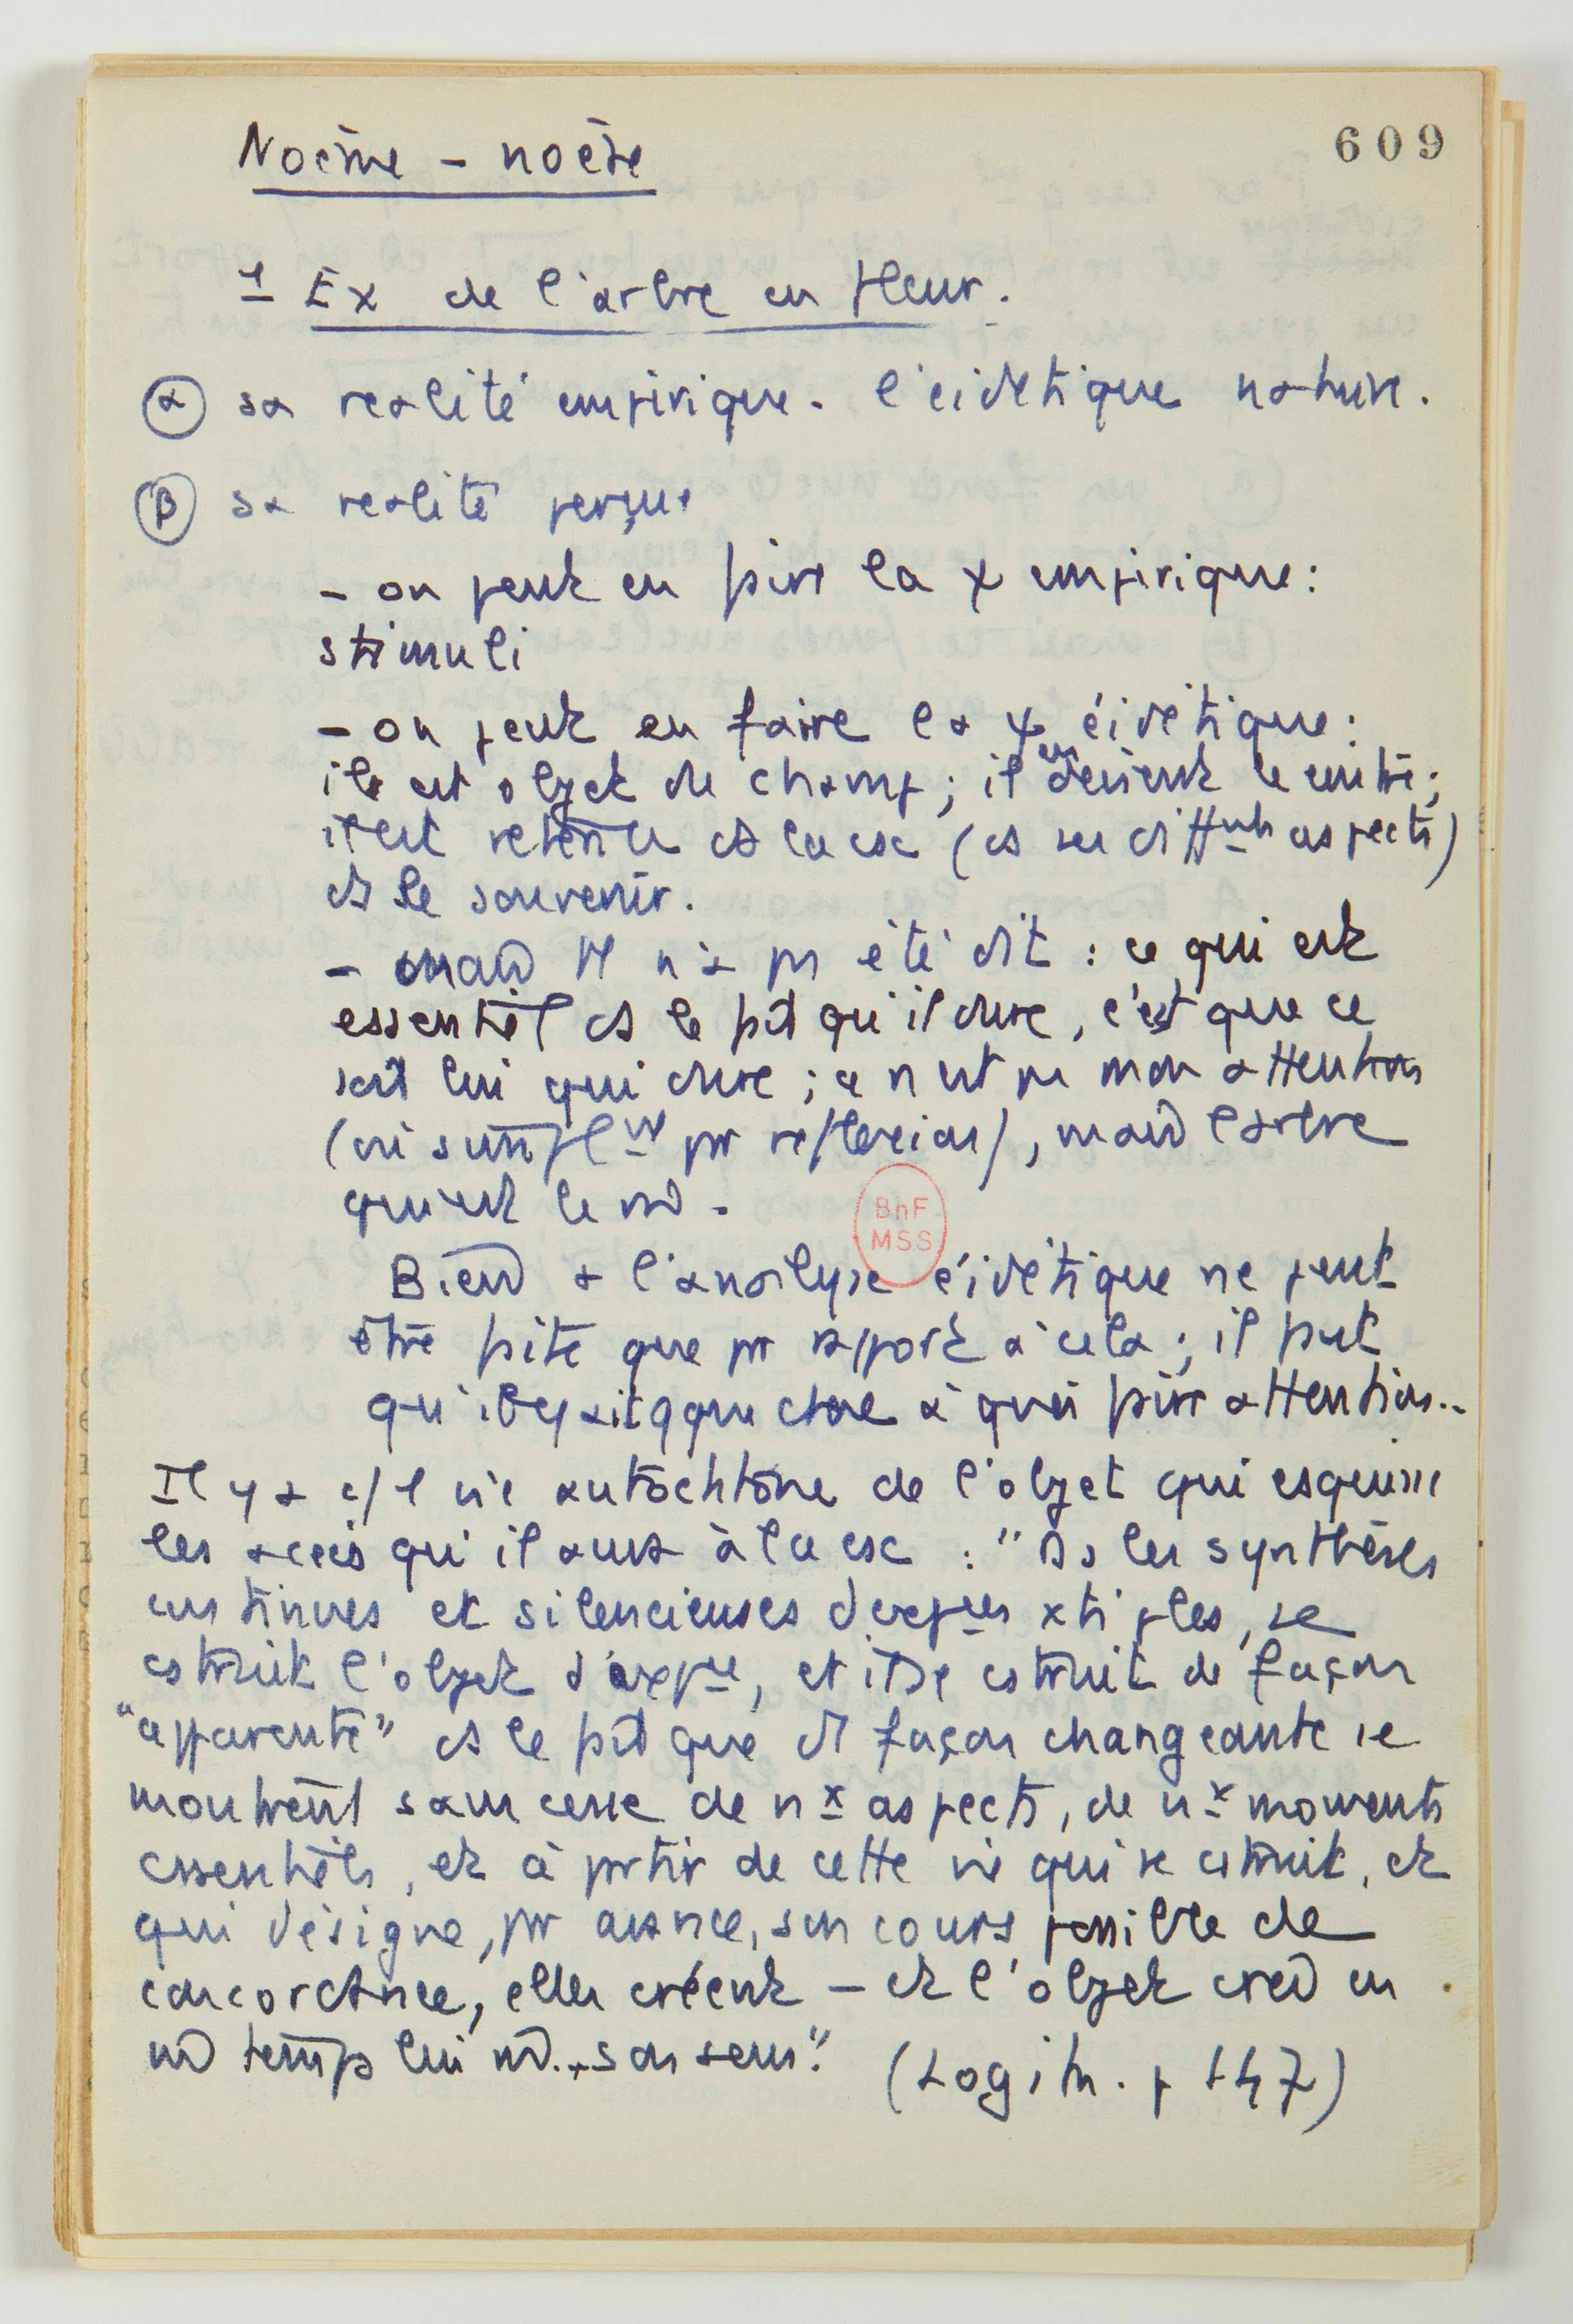 609
Noème - noèse
1 Ex de l'arbre en fleur.
α sa realité empirique. l'eidétique nature.
β sa realité perçue
- on peut en faire la χ empirique:
stimuli
- on peut en faire la χ éidétique:
il est objet de champ; il en devient le centre;
il est retenu ds la csc (ds ses diffnts aspects)
ds le souvenir.
- mais il n'a pas été dit : ce qui est
essentiel ds le fait qu'il dure, c'est que ce
soit lui qui dure; ce n'est pas mon attention
(ni simplnt par reflexion), mais l'arbre
qui est le m̂.
BnF
MSS
Bien à l'analyse éidétique ne peut
être faite que par rapport à cela; il faut
qu'il y ait qque chose à quoi faire attention..
Il y a 1 vie autochtone de l'objet qui esquisse
les accès qu'il aura à la csc : "Ds les synthèses
continues et silencieuses d'expces xtiples, se
cstruit l'objet d'expce, et il se cstruit de façon
"apparente" ds le fait que de façon changeante se
montrent sans cesse de nx aspects, de nx moments
essentiels, et à partir de cette vie qui se cstruit, et
qui désigne, par avance, son cours possible de
concordance, elles créent - et l'objet crée en
m̂ temps lui m̂... son sens." (Log itr. p 147)